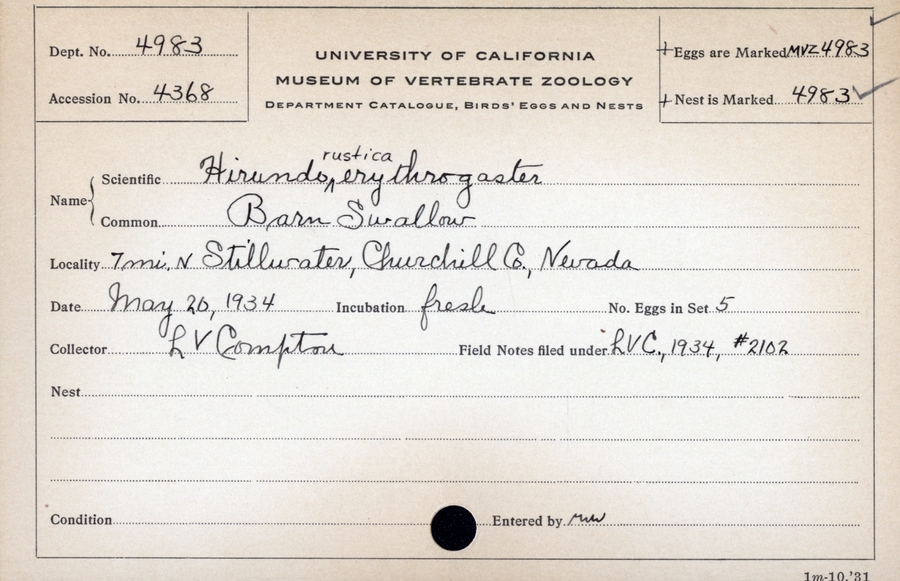 Dept. No. 4983
Accession No. 4368
UNIVERSITY OF CALIFORNIA
MUSEUM OF VERTEBRATE ZOOLOGY
DEPARTMENT CATALOGUE, BIRDS' EGGS AND NESTS
+ Eggs are Marked MVZ 4983
+ Nest is Marked 4983
Name
Scientific Hirundo rustica erythrogaster
Common Barn Swallow
Locality 7 mi. N Stillwater, Churchill Co., Nevada
Date May 20, 1934 Incubation fresh No. Eggs in Set 5
Collector L V Compton Field Notes filed under LVC., 1934, #2102
Nest
Condition Entered by
1m-10,'31